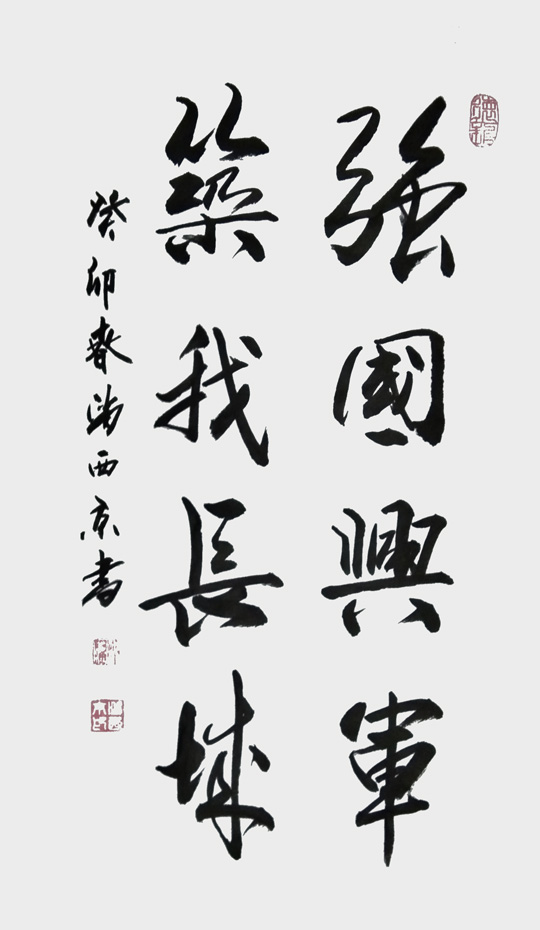 強國興軍
築我長城
癸卯春馮西京書